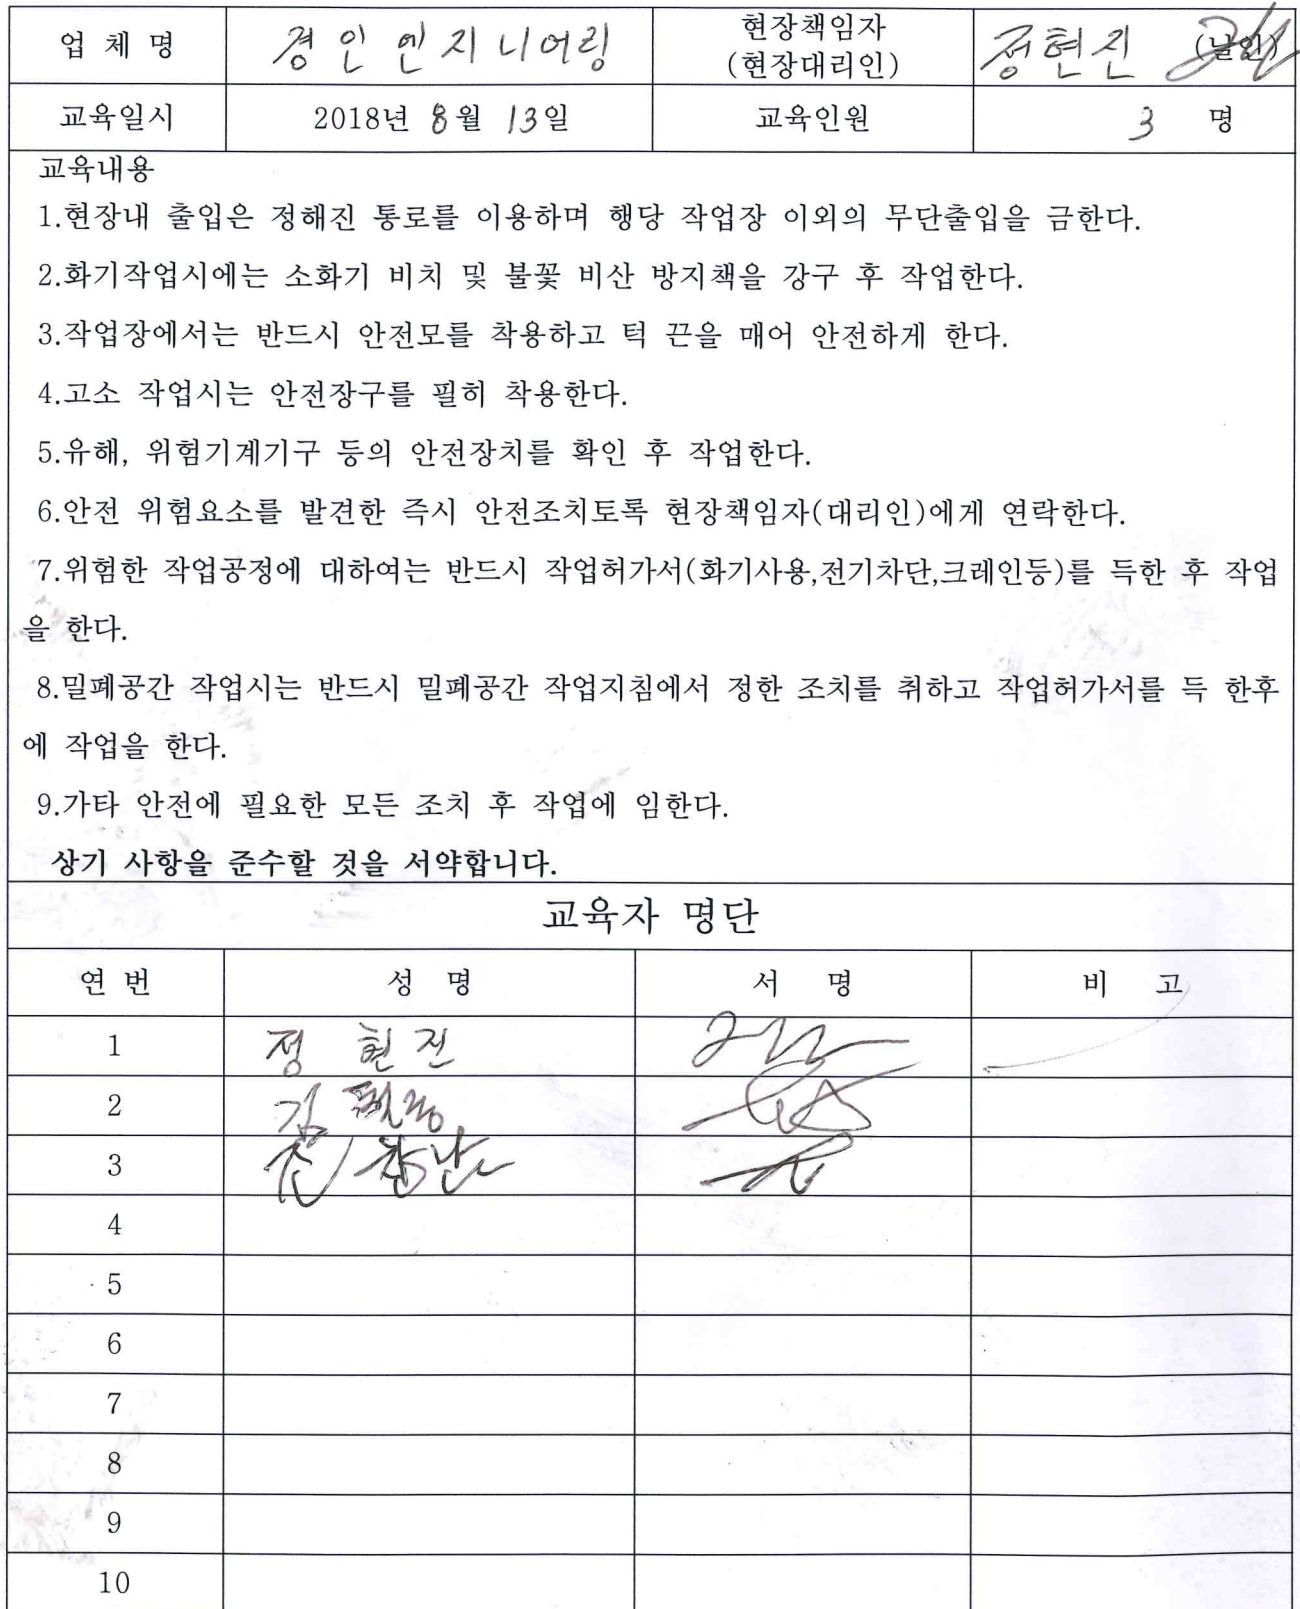 업 체 명 경인엔지니어링 현장책임자 (현장대리인) 정현진 (날인)
교육일시 2018년 8월 13일 교육인원 3 명
교육내용
1.현장내 출입은 정해진 통로를 이용하며 행당 작업장 이외의 무단출입을 금한다.
2.화기작업시에는 소화기 비치 및 불꽃 비산 방지책을 강구 후 작업한다.
3.작업장에서는 반드시 안전모를 착용하고 턱 끈을 매어 안전하게 한다.
4.고소 작업시는 안전장구를 필히 착용한다.
5.유해, 위험기계기구 등의 안전장치를 확인 후 작업한다.
6.안전 위험요소를 발견한 즉시 안전조치토록 현장책임자(대리인)에게 연락한다.
7.위험한 작업공정에 대하여는 반드시 작업허가서(화기사용,전기차단,크레인등)를 득한 후 작업
을 한다.
8.밀폐공간 작업시는 반드시 밀폐공간 작업지침에서 정한 조치를 취하고 작업허가서를 득 한후
에 작업을 한다.
9.가타 안전에 필요한 모든 조치 후 작업에 임한다.
상기 사항을 준수할 것을 서약합니다.
교육자 명단
연 번 성 명 서 명 비 고
1 정 현진
2 김
3
4
5
6
7
8
9
10